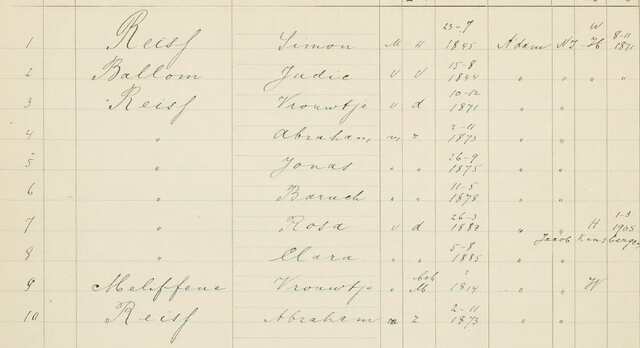 1 Reisf Simon M H 23-7 1845 Adam NI W H 8-11 1871
2 Ballom Judic V V 15-8 1844 " " " "
3 Reisf Vrouwtje v d 10-12 1871 " "
4 " Abraham m z 2-11 1873 " "
5 " Jonas " " 26-9 1875 " "
6 " Baruch " " 11-5 1878 " "
7 " Rosa v d 26-3 1882 " " H 1-3 1905
Jacob
8 " Clara " " 5-8 1885 " "
9 Vrouwtje M ? 1814 " " W
10 Reisf Abraham m z 2-11 1873 " "